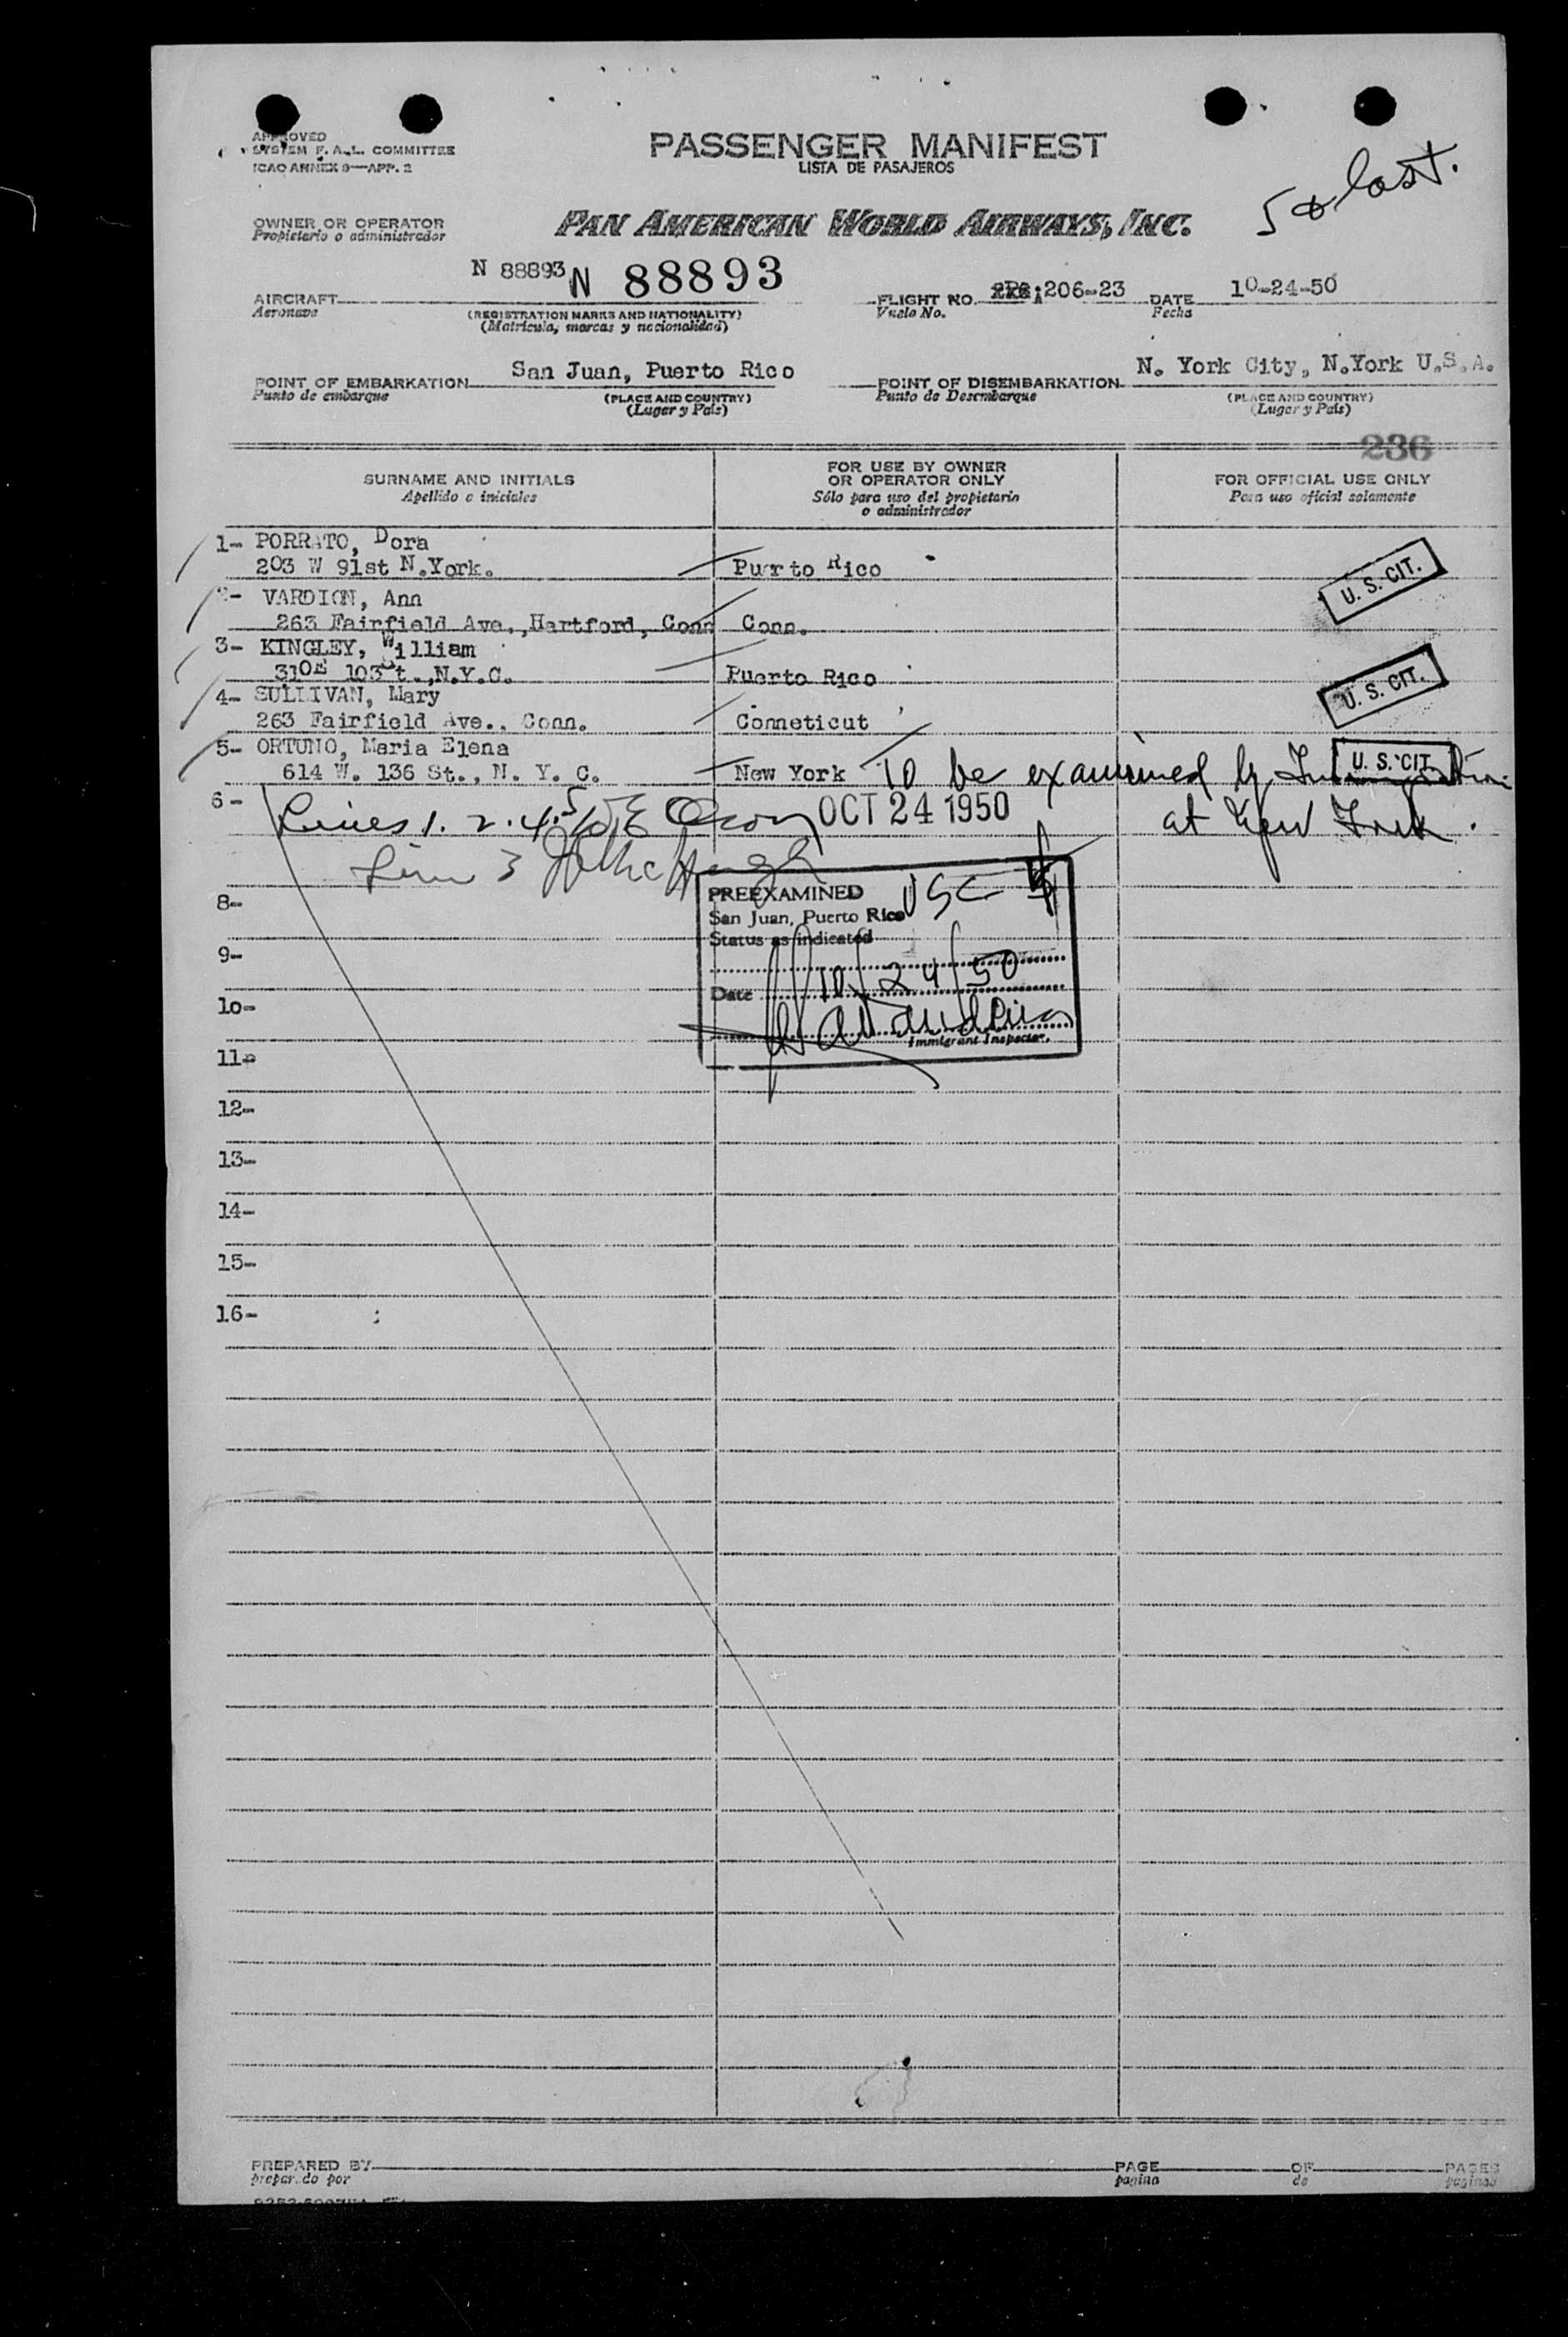 APPROVED
SYSTEM F. A. L. COMMITTEE
ICAO ANNEX 9—APP. 2
PASSENGER MANIFEST
LISTA DE PASAJEROS
5 & last.
OWNER OR OPERATOR
Propietario o administrador
PAN AMERICAN WORLD AIRWAYS, INC.
N 88893 N 88893
AIRCRAFT
Aeronave
(REGISTRATION MARKS AND NATIONALITY)
(Matrícula, marcas y nacionalidad)
FLIGHT NO. 206-23 DATE 10-24-50
Vuelo No. Fecha
POINT OF EMBARKATION San Juan, Puerto Rico
Punto de embarque
(PLACE AND COUNTRY)
(Lugar y País)
POINT OF DISEMBARKATION N. York City, N.York U.S.A.
Punto de Desembarque
(PLACE AND COUNTRY)
(Lugar y País)
236
SURNAME AND INITIALS
Apellido e iniciales
FOR USE BY OWNER
OR OPERATOR ONLY
Sólo para uso del propietario
o administrador
FOR OFFICIAL USE ONLY
Para uso oficial solamente
1- PORRATO, Dora
203 W 91st N.York. Puerto Rico
U. S. CIT.
2- VARDION, Ann
263 Fairfield Ave., Hartford, Conn Conn.
3- KINGLEY, William
310E 103 St., N.Y.C. Puerto Rico
U. S. CIT.
4- SULLIVAN, Mary
263 Fairfield Ave., Conn. Conneticut
5- ORTUNO, Maria Elena
614 W. 136 St., N. Y. C. New York To be examined by
U. S. CIT.
6- Lines 1. 2. 4. 5 OCT 24 1950 at New York.
Line 3
PREEXAMINED USC
San Juan, Puerto Rico
Status as indicated
Date 10/24/50
Immigrant Inspector.
8-
9-
10-
11-
12-
13-
14-
15-
16-
PREPARED BY
preparado por
PAGE OF PAGES
página de páginas